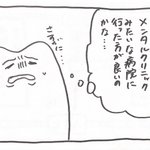 メンタルクリニック
みたいな病院に
行った方が良いの
かな…
さすがに…